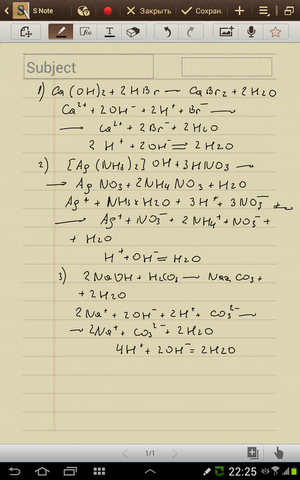 S Note
Закрыть
Сохран.
Subject
1) Ca(OH)2 + 2HBr — CaBr2 + 2H2O
Ca²⁺ + 2OH⁻ + 2H⁺ + Br⁻ —
→ Ca²⁺ + 2Br⁻ + 2H2O
2H⁺ + 2OH⁻ = 2H2O
2) [Ag(NH3)2]OH + 3HNO3 →
→ AgNO3 + 2NH4NO3 + H2O
Ag⁺ + NH3×H2O + 3H⁺ + 3NO3⁻ →
→ Ag⁺ + NO3⁻ + 2NH4⁺ + NO3⁻ +
+ H2O
H⁺ + OH⁻ = H2O
3) 2NaOH + H2CO3 — Na2CO3 +
+ 2H2O
2Na⁺ + 2OH⁻ + 2H⁺ + CO3²⁻ →
→ 2Na⁺ + CO3²⁻ + 2H2O
4H⁺ + 2OH⁻ = 2H2O
1/1
22:25